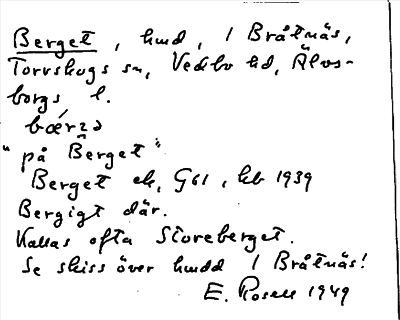 Berget, hmd, 1 Bråtnäs,
Torrskogs sn, Vedbo hd, Älvs-
borgs l.
bæ´rzə
"på Berget"
Berget ek, G61, kb 1939
Bergigt där.
Kallas ofta Storeberget.
Se skiss över hmdd 1 Bråtnäs!
E. Rosell 1949